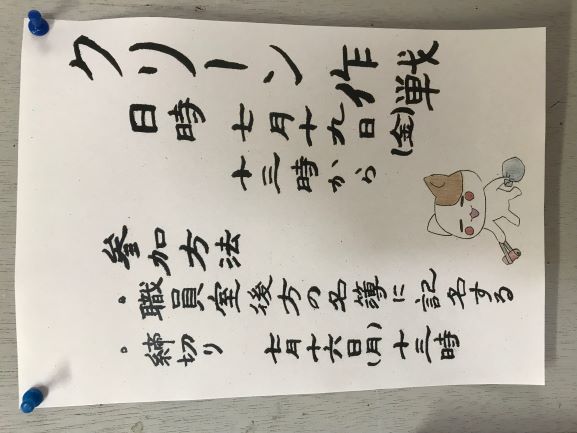 クリーン作戦
日時 七月十九日(金)
十三時から
参加方法
・職員室後方の名簿に記名する
・締切り 七月十六日(月)十三時